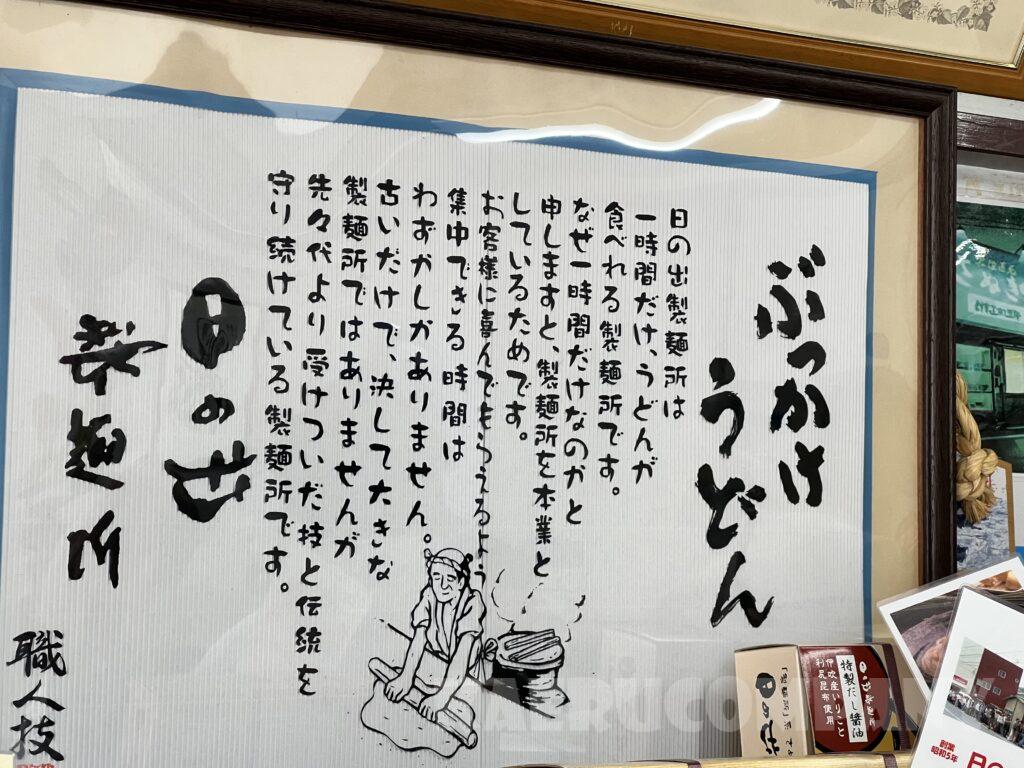 ぶっかけ
うどん
日の出製麺所は
一時間だけ、うどんが
食べれる製麺所です。
なぜ一時間だけなのかと
申しますと、製麺所を本業と
しているためです。
お客様に喜んでもらえるよう
集中できる時間は
わずかしかありません。
古いだけで、決して大きな
製麺所ではありませんが
先々代より受けついだ技と伝統を
守り続けている製麺所です。
日の出
製麺所
職人技
特製だし醤油
伊吹産いりこと
利尻昆布使用
創業
昭和5年